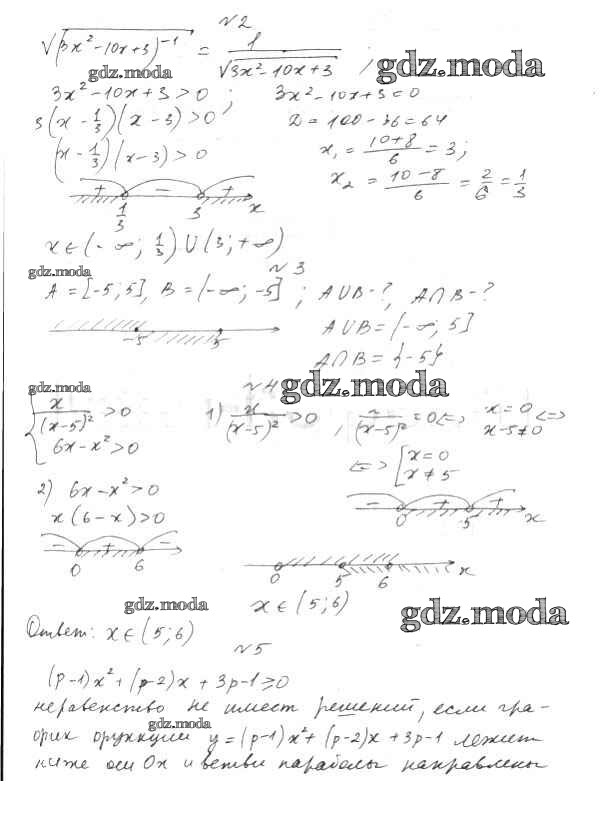 №2
√(3x²-10x+3)⁻¹ = 1/√(3x²-10x+3) ;
gdz.moda
gdz.moda
3x²-10x+3>0 ; 3x²-10x+3=0
3(x-1/3)(x-3)>0 D=100-36=64
(x-1/3)(x-3)>0 x₁=(10+8)/6=3;
x₂=(10-8)/6=2/6=1/3
+ - +
1/3 3 x
x∈(-∞; 1/3)∪(3;+∞)
gdz.moda
№3
A=[-5;5], B=(-∞;-5] ; A∪B-?, A∩B-?
-5 5
A∪B=(-∞;5]
A∩B={-5}
gdz.moda
№4
gdz.moda
{ x/(x-5)²>0
6x-x²>0
1) x/(x-5)²>0 , x/(x-5)²=0 <=> x=0
x-5≠0 <=>
<=> [ x=0
x≠5
2) 6x-x²>0
x(6-x)>0
- + +
0 5 x
- + -
0 6
0 5 6 x
x∈(5;6)
gdz.moda
gdz.moda
Ответ: x∈(5;6)
№5
(p-1)x²+(p-2)x+3p-1≥0
неравенство не имеет решений, если гра-
gdz.moda
фик функции y=(p-1)x²+(p-2)x+3p-1 лежит
ниже оси Ox и ветви параболы направлены